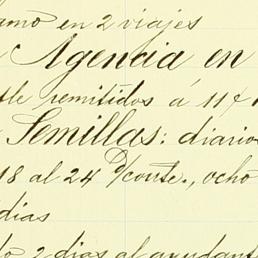 amo en 2 viajes
Agencia en
tle remitidos á 11 ¢
Semillas: diario
18 al 24 P/conte., ocho
dias
do 2 dias al ayudant